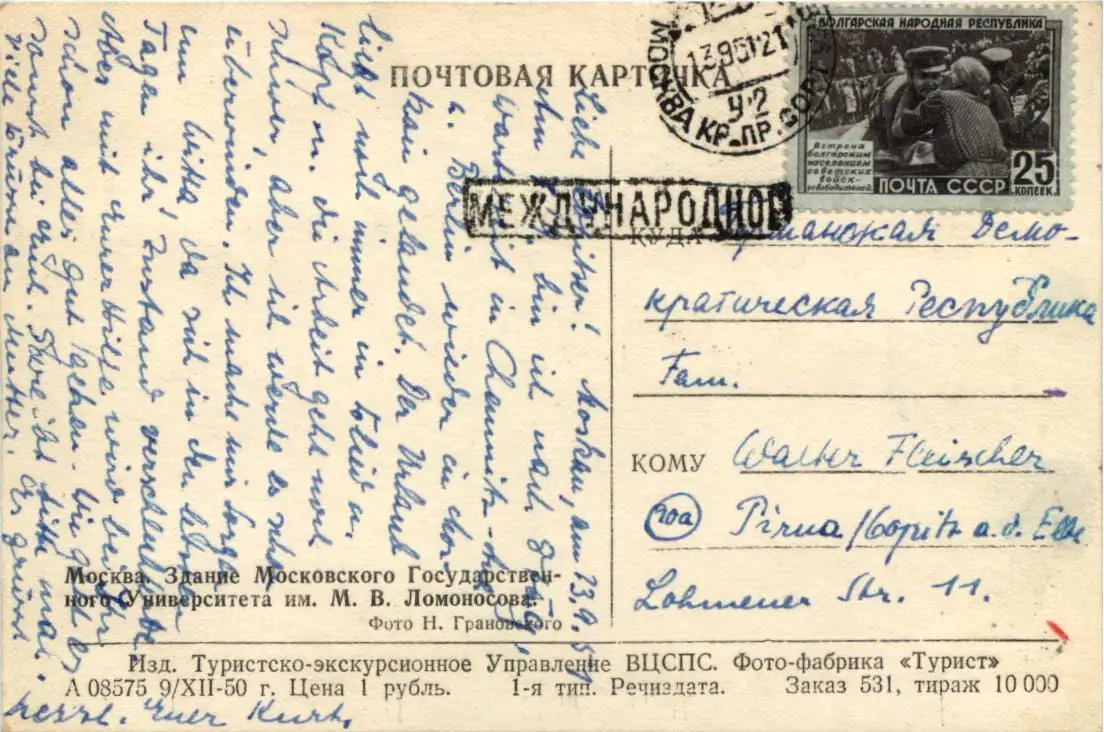 ПОЧТОВАЯ КАРТОЧКА
МОСКВА КР.ПР.СОРТ
1395121
У-2
БОЛГАРСКАЯ НАРОДНАЯ РЕСПУБЛИКА
Встреча
болгарским
населением
советских
войск-
освободителей.
ПОЧТА СССР
25
КОПЕЕК
МЕЖДУНАРОДНОЕ
КУДА Германская Демо-
кратическая Республика
Fam.
КОМУ Walter Fleischer
20a Pirna/Copitz a.d. Elbe
Lohmener Str. 11.
Liebe Copitzer! Moskau, am 13.9.51
bin ich nach
in Chemnitz
Berlin wieder in Mos-
kau gelandet. Der Urlaub
liegt noch immer in u.
Kopf u. die Arbeit geht noch
schwer, aber ich werde es schon
überwinden. Ich mache mir Sorge
um da sich in den letzten
Tagen ihr Zustand verschlechterte.
Aber mit Eurer Hilfe wird bei Ihr
schon alles gut gehen. Wie geht es
sonst bei Euch. Schreibt bitte mal.
Viele an Mutter. Es grüsst
herzl. Euer Kurt.
Москва. Здание Московского Государствен-
ного Университета им. М. В. Ломоносова.
Фото Н. Грановского
Изд. Туристско-экскурсионное Управление ВЦСПС. Фото-фабрика «Турист»
А 08575 9/XII-50 г. Цена 1 рубль. 1-я тип. Речиздата. Заказ 531, тираж 10 000